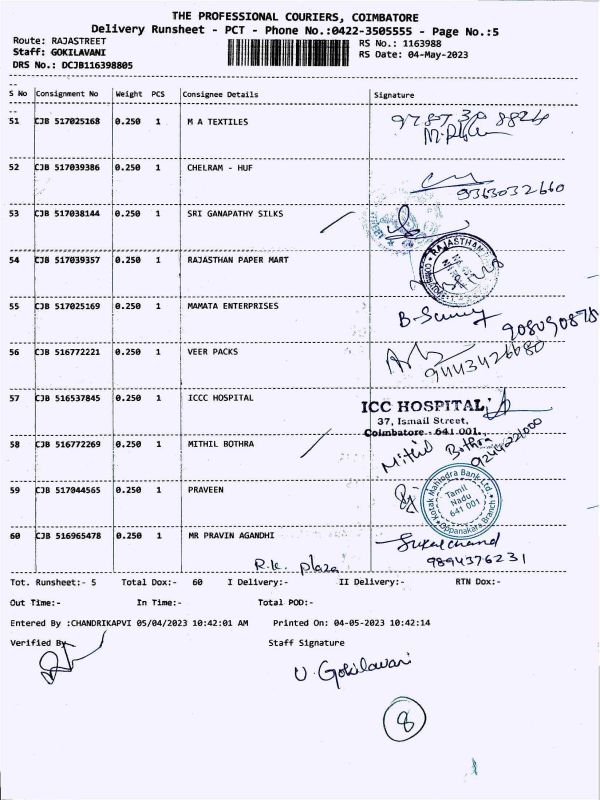 THE PROFESSIONAL COURIERS, COIMBATORE
Delivery Runsheet - PCT - Phone No.:0422-3505555 - Page No.:5
Route: RAJASTREET
RS No.: 1163988
Staff: GOKILAVANI
RS Date: 04-May-2023
DRS No.: DCJB116398805
S No Consignment No Weight PCS Consignee Details Signature
51 CJB 517025168 0.250 1 M A TEXTILES
52 CJB 517039386 0.250 1 CHELRAM - HUF
9363032660
53 CJB 517038144 0.250 1 SRI GANAPATHY SILKS
54 CJB 517039357 0.250 1 RAJASTHAN PAPER MART
RAJASTHAN
55 CJB 517025169 0.250 1 MAMATA ENTERPRISES
56 CJB 516772221 0.250 1 VEER PACKS
9443426680
57 CJB 516537845 0.250 1 ICCC HOSPITAL
ICC HOSPITAL
37, Ismail Street,
Coimbatore - 641 001.
58 CJB 516772269 0.250 1 MITHIL BOTHRA
Mithil Bothra
59 CJB 517044565 0.250 1 PRAVEEN
Kotak Mahindra Bank Ltd.
Tamil
Nadu
641 001
Oppanakara Branch
60 CJB 516965478 0.250 1 MR PRAVIN AGANDHI
R.K. plaza
9894376231
Tot. Runsheet:- 5 Total Dox:- 60 I Delivery:- II Delivery:- RTN Dox:-
Out Time:- In Time:- Total POD:-
Entered By :CHANDRIKAPVI 05/04/2023 10:42:01 AM Printed On: 04-05-2023 10:42:14
Verified By Staff Signature
U. Gokilavani
8